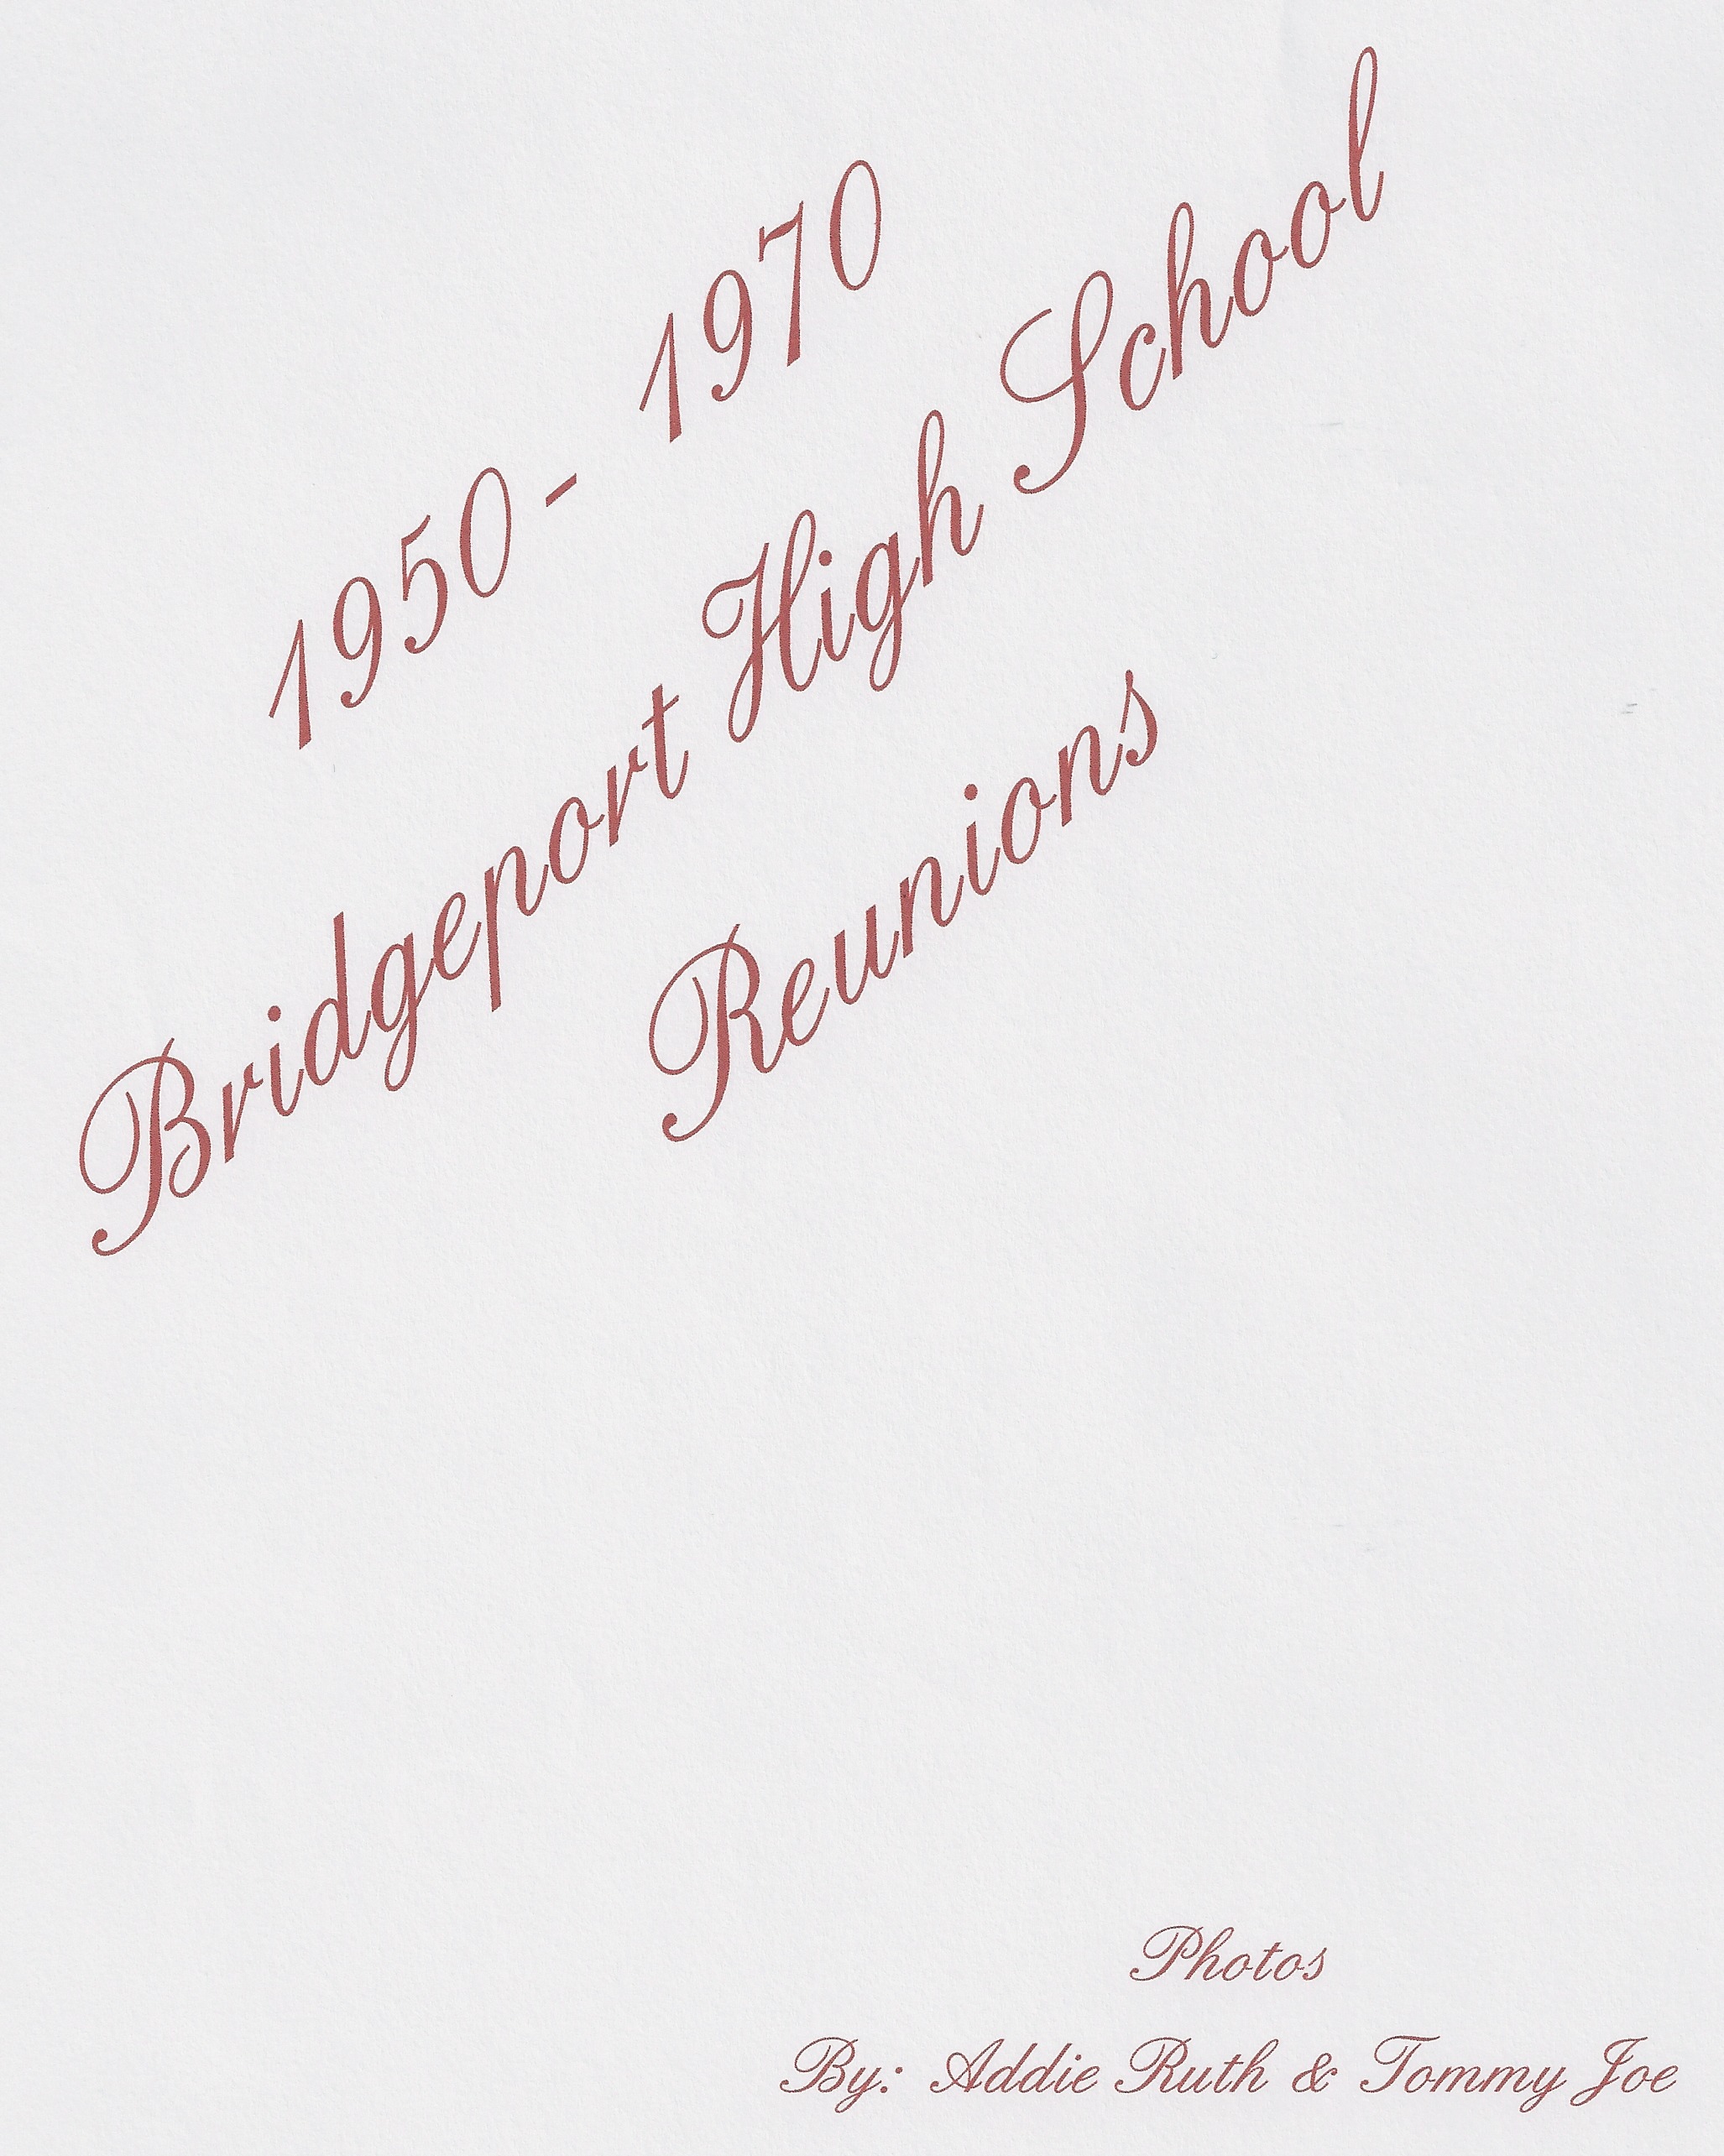 1950 - 1970
Bridgeport High School
Reunions
Photos
By: Addie Ruth & Tommy Joe